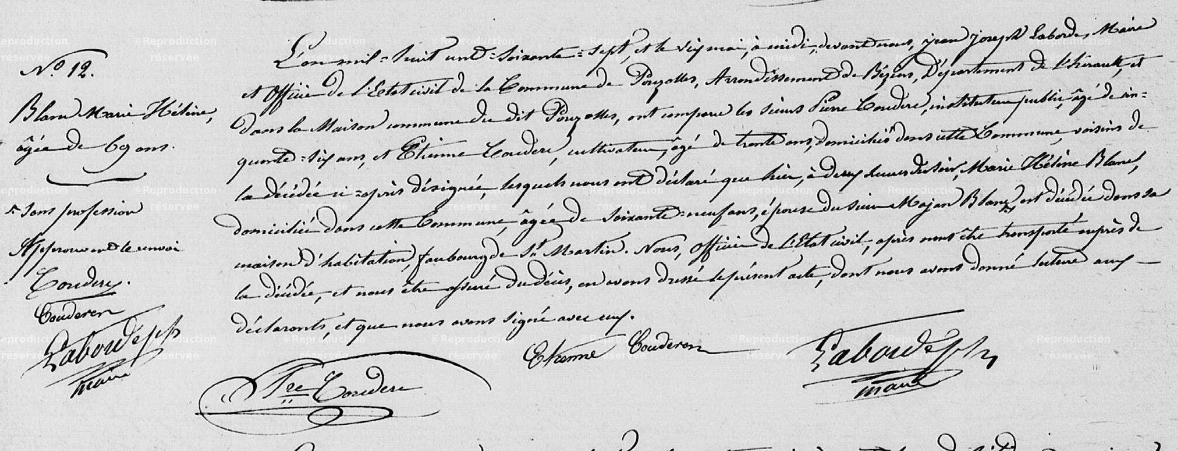 N° 12.
Blanc Marie Hélène,
âgée de 69 ans.
+ Sans profession
Approuvant le renvoi
Couderc.
Couderen
Laborde Jph
maire
L'an mil-huit cent-soixante-sept, et le six mai, à midi, devant nous, Jean Joseph Laborde, Maire
et Officier de l'Etat civil de la Commune de Pouzolles, Arrondissement de Béziers, Département de l'hérault, et
dans la Maison commune du dit Pouzolles, ont comparu les sieurs Pierre Couderc, instituteur public, âgé de cin-
quante-six ans, et Etienne Couderc, cultivateur, âgé de trente ans, domiciliés dans cette Commune, voisins de
la décédée ci-après désignée lesquels nous ont déclaré que hier, à deux heures du soir, Marie Hélène Blanc,
domiciliée dans cette Commune, âgée de soixante-neuf ans, épouse du sieur Majan Blanc, est décédée dans sa
maison d'habitation, faubourg de St Martin. Nous, Officier de l'Etat civil, après nous être transporté auprès de
la décédée, et nous être assuré du décès, en avons dressé le présent acte, dont nous avons donné lecture aux
déclarants, et que nous avons signé avec eux.
Etienne Couderen
Laborde Jph
maire
Pre Couderc